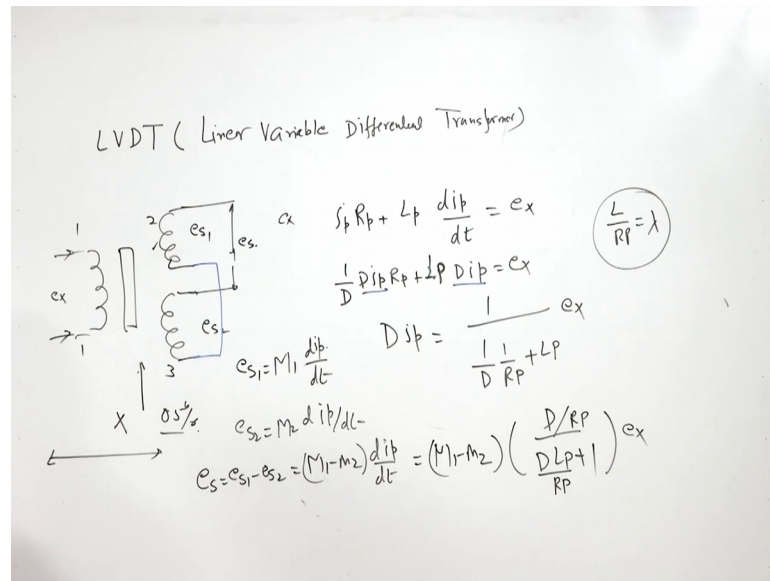 LVDT ( Liner Variable Differential Transformer)
1
ex
1
2
es₁
es.
es₂
3
X
0.5%
ex
ip Rp + Lp dip/dt = ex
L/RP = λ
1/D Dip Rp + LP Dip = ex
Dip = 1/(1/D 1/RP + LP) ex
es₁ = M₁ dip/dt
es₂ = M₂ dip/dt
es = es₁ - es₂ = (M₁-M₂) dip/dt = (M₁-M₂) ( (D/RP)/(DLP/RP + 1) ) ex